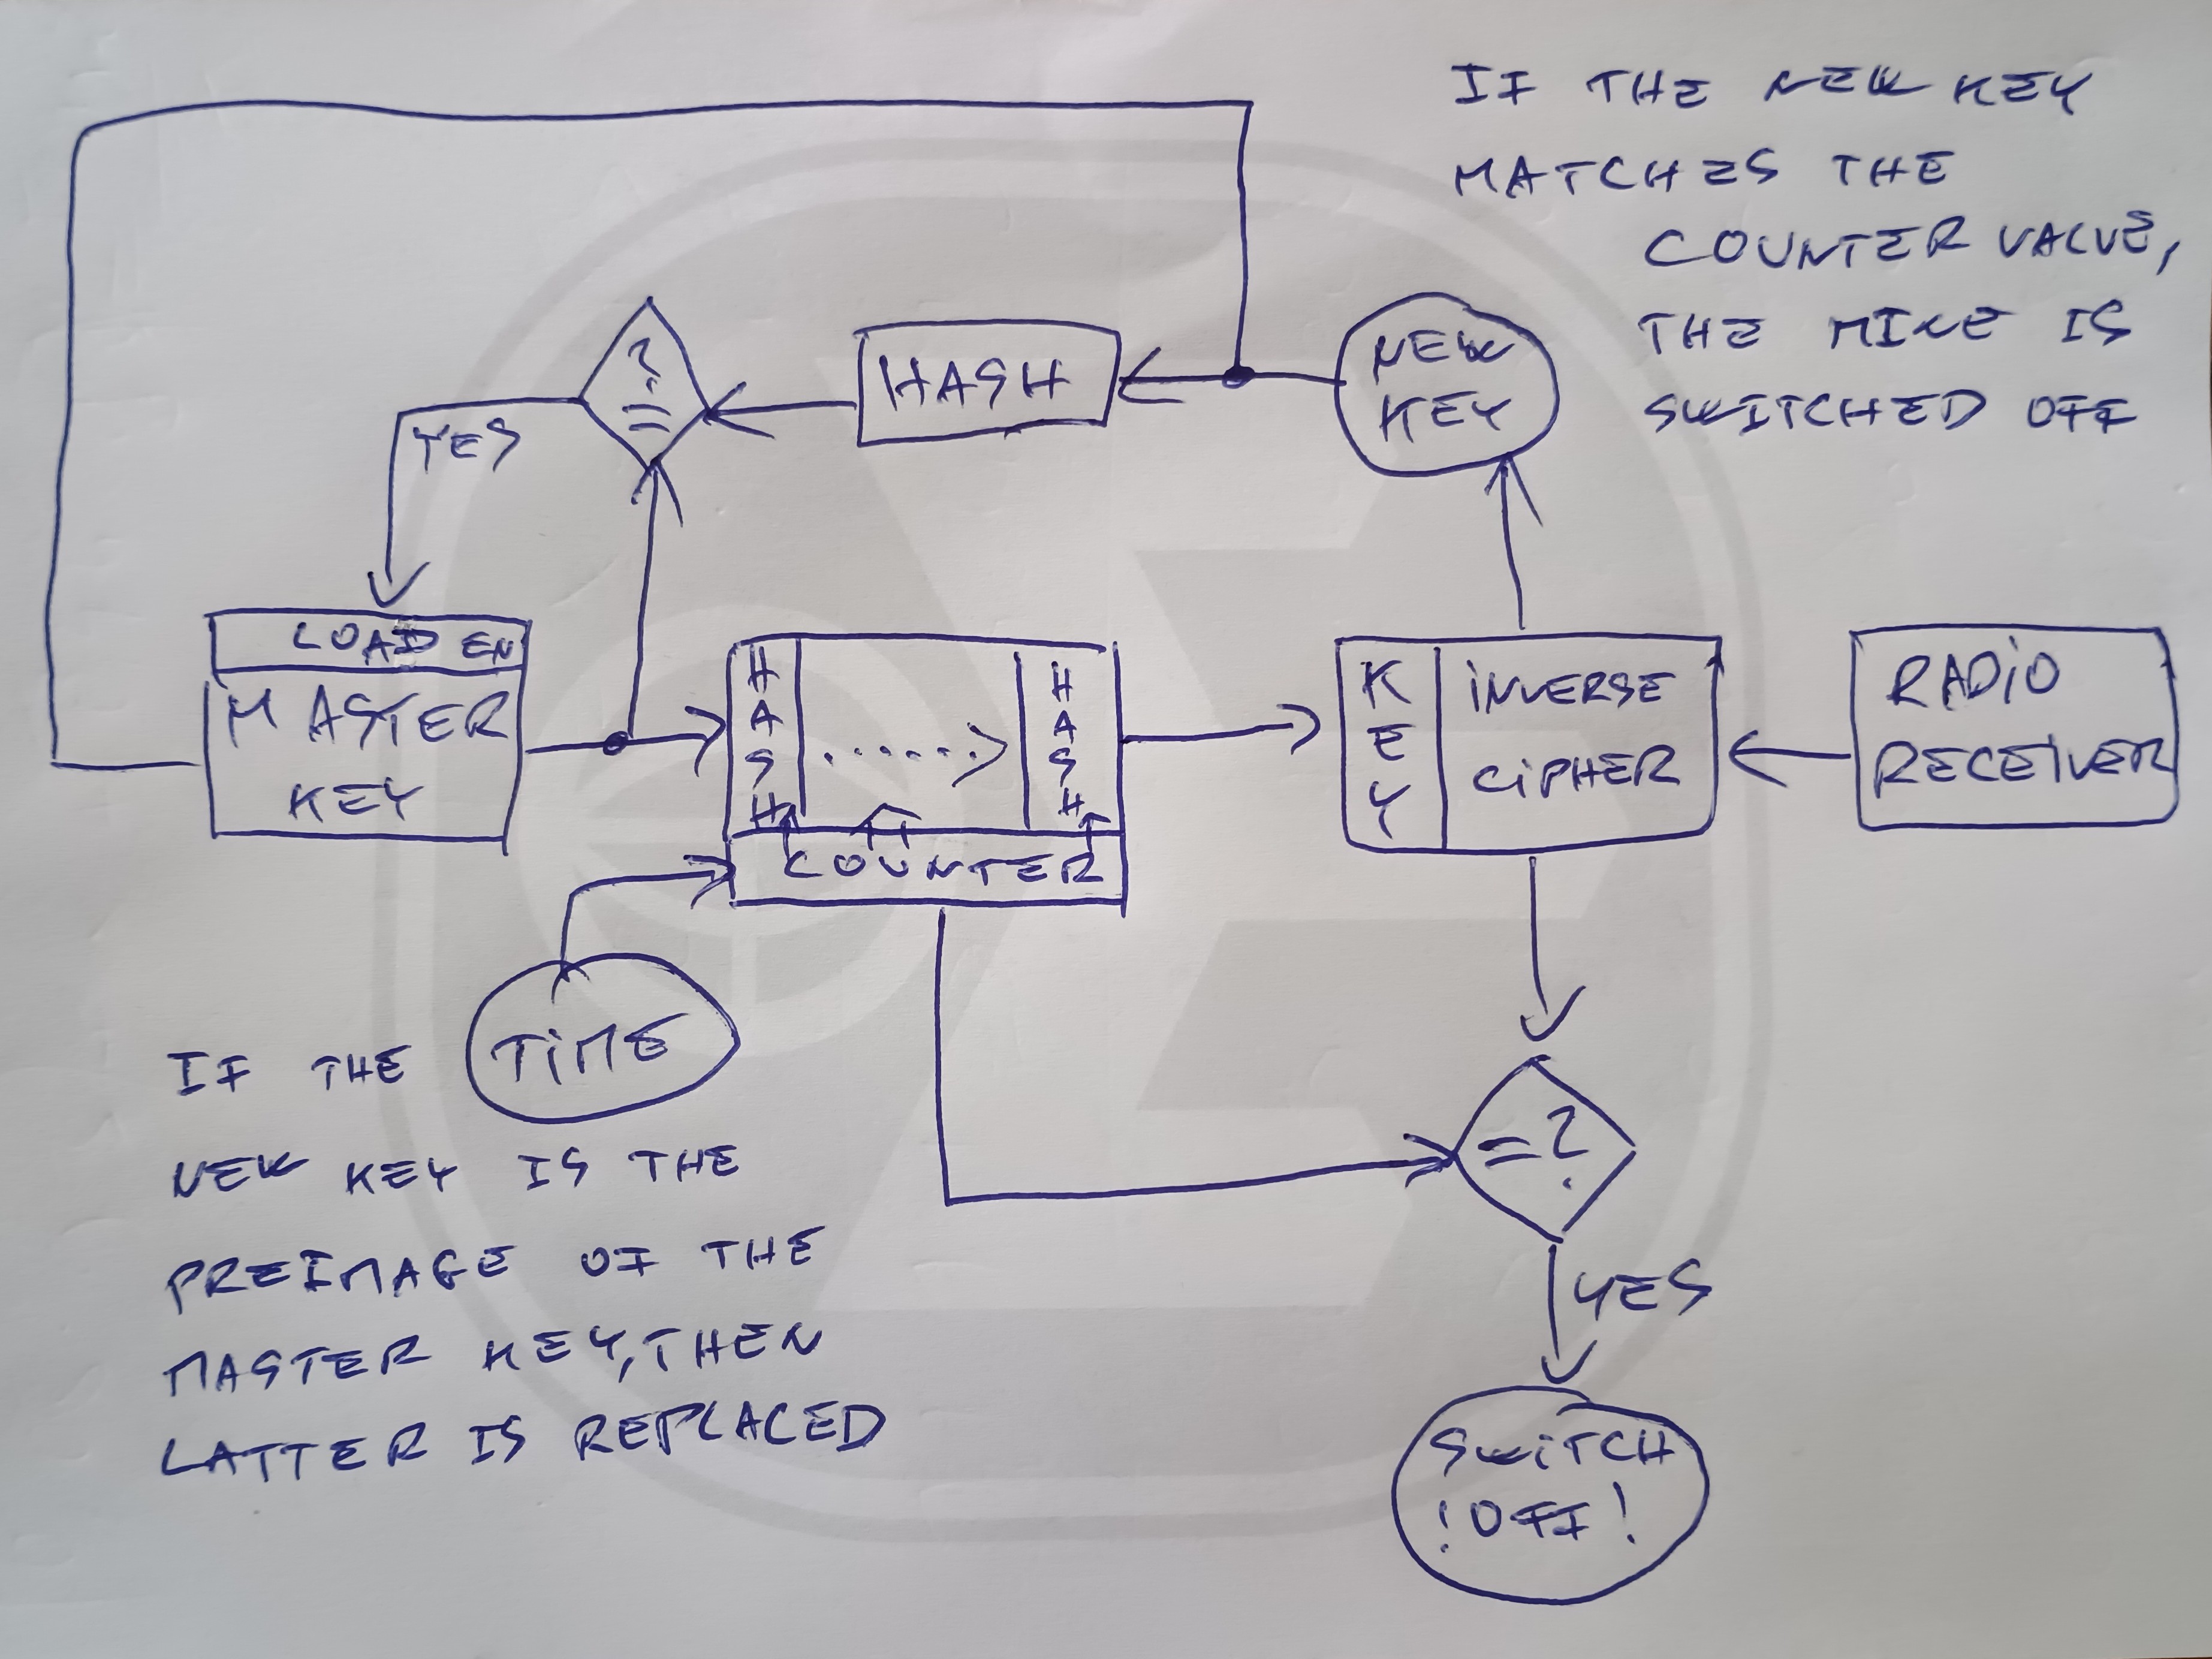 IF THE NEW KEY
MATCHES THE
COUNTER VALUE,
THE MINE IS
SWITCHED OFF
?
=
HASH
NEW
KEY
YES
LOAD EN
MASTER
KEY
HASH
HASH
COUNTER
KEY
INVERSE
CIPHER
RADIO
RECEIVER
TIME
IF THE
NEW KEY IS THE
PREIMAGE OF THE
MASTER KEY, THEN
LATTER IS REPLACED
=?
YES
SWITCH
!OFF!